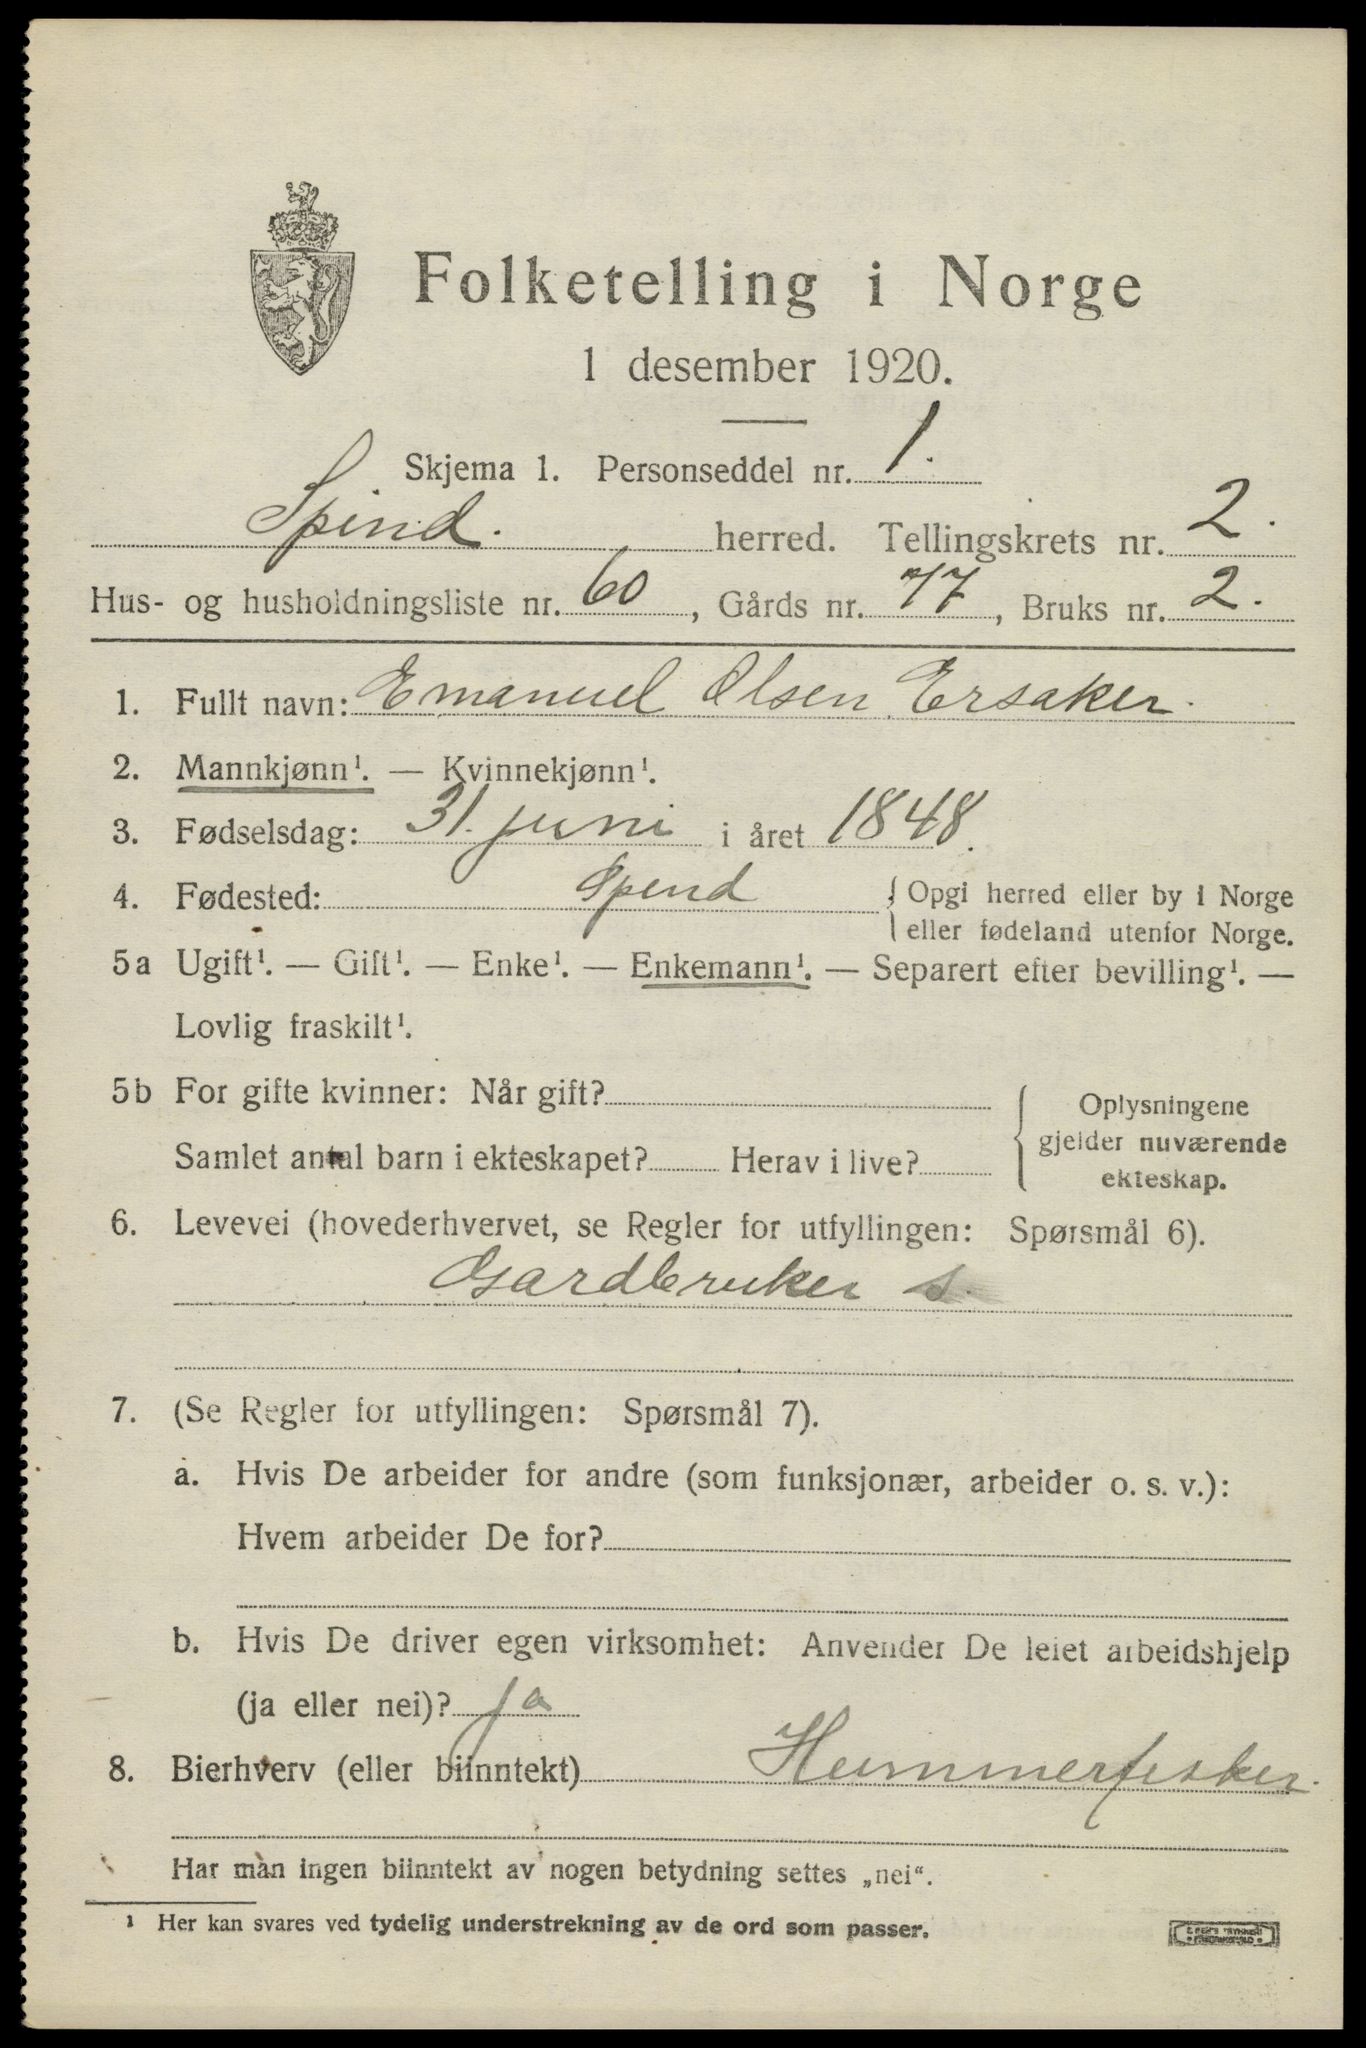 Folketelling i Norge
1 desember 1920.
Skjema 1. Personseddel nr. 1.
Spind. herred. Tellingskrets nr. 2.
Hus- og husholdningsliste nr. 60, Gårds nr. 77, Bruks nr. 2.
1. Fullt navn: Emanuel Olsen Ersaker.
2. Mannkjønn¹. — Kvinnekjønn¹.
3. Fødselsdag: 31. juni i året 1848.
4. Fødested: Spend { Opgi herred eller by i Norge
eller fødeland utenfor Norge.
5a Ugift¹. — Gift¹. — Enke¹. — Enkemann¹. — Separert efter bevilling¹. —
Lovlig fraskilt¹.
5b For gifte kvinner: Når gift?
Samlet antal barn i ekteskapet? Herav i live?
{ Oplysningene
gjelder nuværende
ekteskap.
6. Levevei (hovederhvervet, se Regler for utfyllingen: Spørsmål 6).
Gardbruker s.
7. (Se Regler for utfyllingen: Spørsmål 7).
a. Hvis De arbeider for andre (som funksjonær, arbeider o. s. v.):
Hvem arbeider De for?
b. Hvis De driver egen virksomhet: Anvender De leiet arbeidshjelp
(ja eller nei)? ja
8. Bierhverv (eller biinntekt) Hummerfisker.
Har man ingen biinntekt av nogen betydning settes „nei“.
¹ Her kan svares ved tydelig understrekning av de ord som passer.